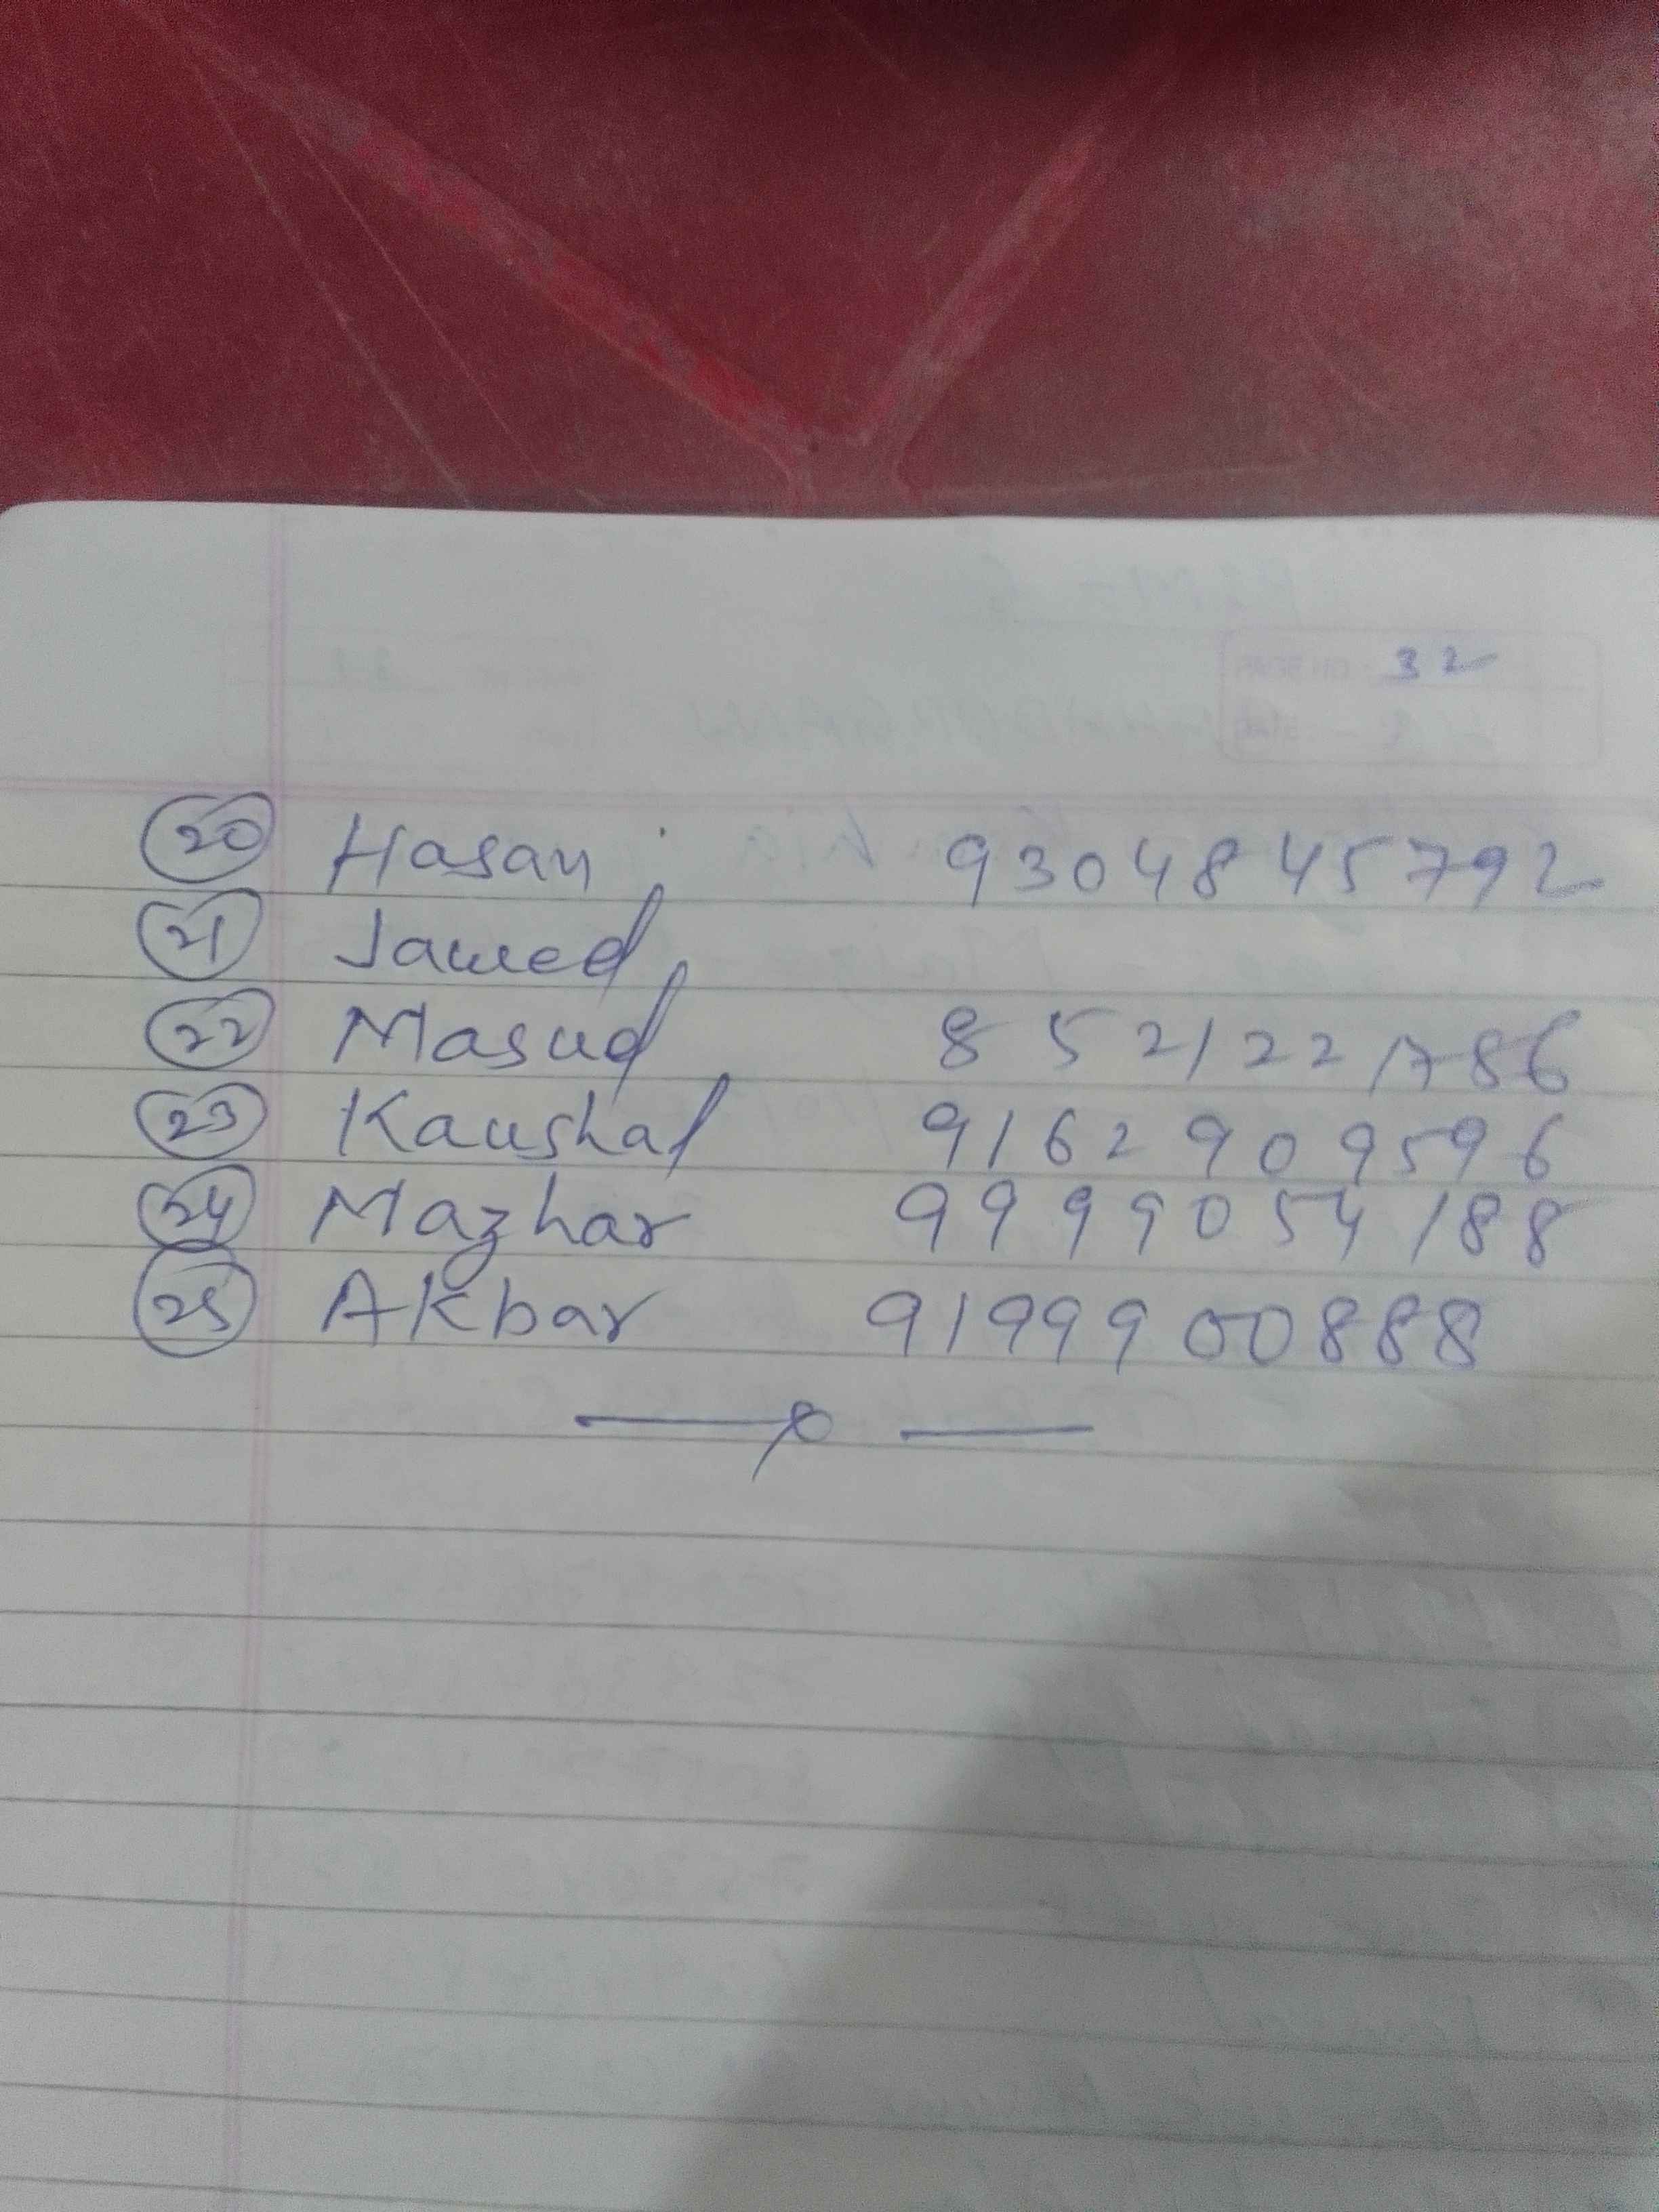 32
20 Hasan 9304845792
21 Jawed
22 Masud 8521221786
23 Kaushal 9162909596
24 Mazhar 9999054188
25 Akbar 9199900888